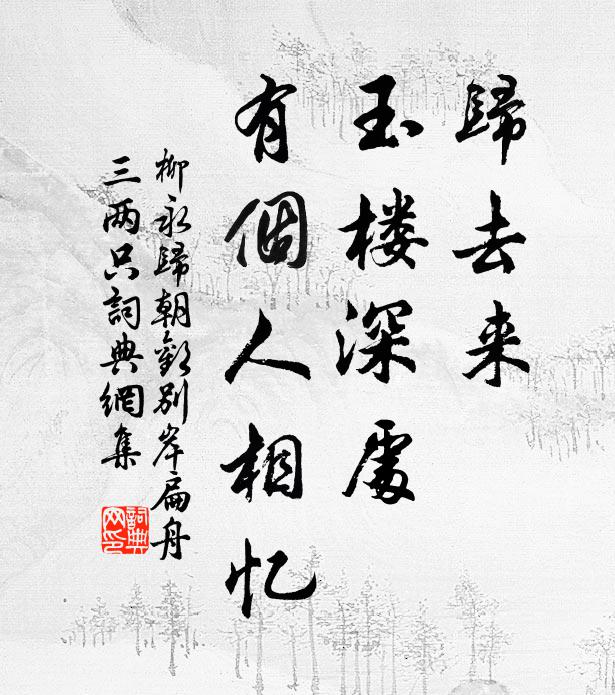 歸去来
玉楼深處
有個人相忆
柳永歸朝歡别岸扁舟
三两只詞典網集
詞典网印